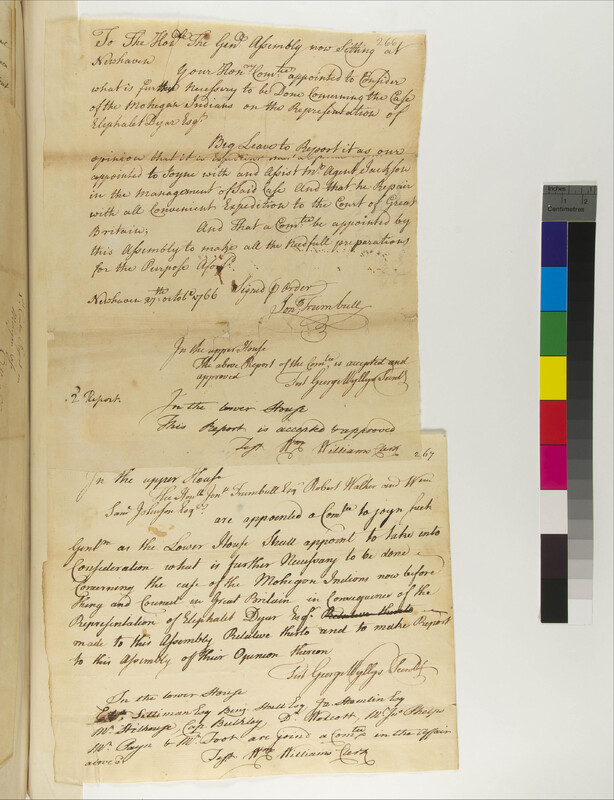 266
To The Honble The Genl Assembly now Sitting at
Newhaven
Your Honrs Comtee appointed to Consider
what is further necessery to be Done Concerning the Case
of the Mohegan Indians on the Representation of
Eliphalet Dyar Esqr
Beg Leave to Report it as our
opinion that it is
appointed to Joyne with and Assist Mr Agent Jackson
in the Management of Said Case And that he Repair
with all Convenient Expedition to the Court of Great
Britain; And That a Comtee be appointed by
this Assembly to make all the Needfull preparations
for the Purpose Aforsd
Newhaven 27th octobr 1766 Signed p Order
Jonth Trumbull
In the upper House
The above Report of the Comtee is accepted and
approved Test George Wyllys Secrety
Report
In the lower House
This Report is accepted & approved
Test Wm Williams Clerk
267
In the upper House
The Honble Jonth Trumbull Esqr Robert Walker and Wm
Saml Johnson Esqrs
are appointed a Comtee to joyn such
Gentn as the Lower House Shall appoint to take into
Consideration what is further Necessary to be done
Concerning the case of the Mohegan Indians now before
King and Council in Great Britain in Consequence of the
Representation of Eliphalet Dyar Esqr Relative thereto
made to this Assembly Relative thereto and to make Report
to this Assembly of their Opinion thereon
Test George Wyllys Secrety
In the lower House
Silliman Esq Benj. Hall Esq Jn Hamlin Esq
Mr Hilhouse, Cap. Bulkley, Dr Wolcott, Mr Jno Phelps
Mr Payn & Mr Foot are joind a Comtee in the Affair
above sd
Test Wm Williams Clerk
Inches
1 2
Centimetres